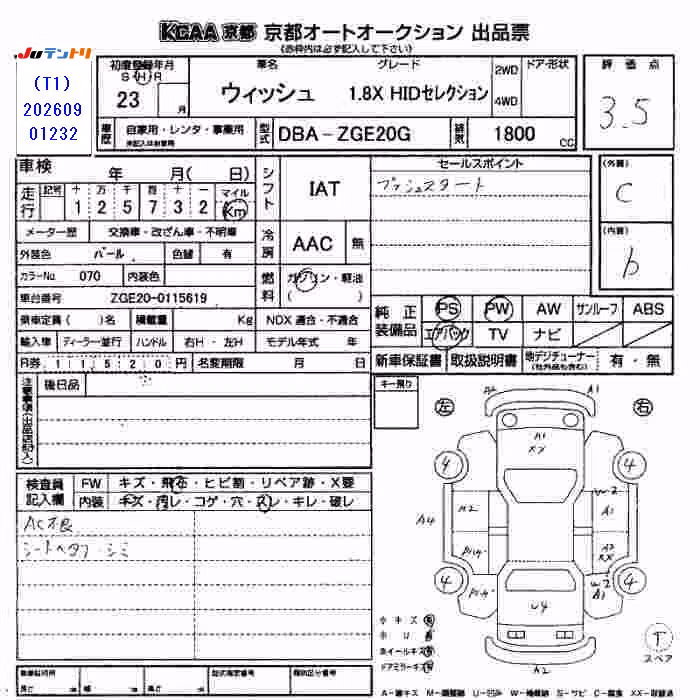 KCAA 京都 京都オートオークション 出品票
(赤枠内は必ず記入して下さい)
JUテントリ
(T1)
202609
01232
初度登録年月
S H R
23 月
車名
ウィッシュ
グレード
1.8X HIDセレクション
2WD
4WD
ドア・形状
評価点
3.5
車歴
自家用・レンタ・事業用
未記入は自家用
型式
DBA-ZGE20G
排気
1800 CC
車検 年 月( 日)
走行
記号 十 万 千 百 十 一 マイル
1 2 5 7 3 2 Km
シフト
IAT
セールスポイント
プッシュスタート
(外装)
C
(内装)
b
メーター歴 交換車・改ざん車・不明車
外装色 パール 色替 有
冷房
AAC 無
カラーNo 070 内装色
燃料
ガソリン・軽油
( )
車台番号 ZGE20-0115619
乗車定員( )名 積載量 Kg NOX 適合・不適合
輸入車 ディーラー・並行 ハンドル 右H・左H モデル年式 年
R券 11520円 名変期限 月 日
純正装備品
PS PW AW サンルーフ ABS
エアバック TV ナビ
新車保証書 取扱説明書 地デジチューナー (社外品も含む) 有・無
注意事項(出品店記入)
後日品
キー預り
左 右
検査員記入欄
FW キズ・飛石・ヒビ割・リペア跡・X要
内装 キズ・汚レ・コゲ・穴・スレ・キレ・破レ
AC不良
シートヘタリ・シミ
A2 A1
A1
XX
4 4
W2
A2 A1
A4
A2
XX
4 4
W2
A1
U4
A2
小キズ 有
ホイールキズ 有
ドアミラーキズ 有
T
スペア
車輌証明用
長さ 幅 高さ
型式指定番号
類別区分番号